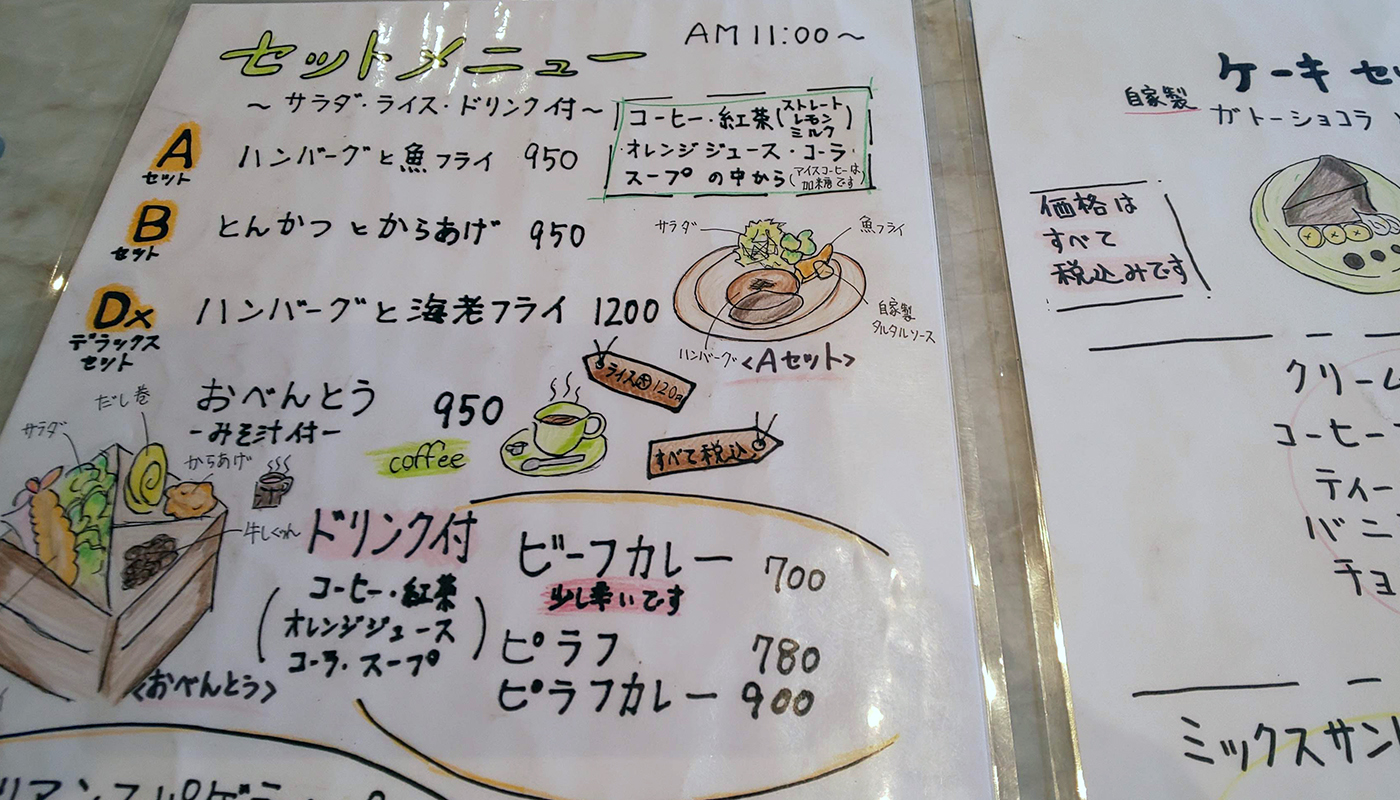 セットメニュー
AM 11:00～
～サラダ・ライス・ドリンク付～
コーヒー・紅茶(ストレート
レモン
ミルク)
オレンジジュース・コーラ・
スープ の中から(アイスコーヒーは
加糖です)
A
セット
ハンバーグと魚フライ 950
B
セット
とんかつとからあげ 950
Dx
デラックス
セット
ハンバーグと海老フライ 1200
サラダ
魚フライ
自家製
タルタルソース
ハンバーグ
<Aセット>
おべんとう 950
-みそ汁付-
ライス大120円
すべて税込
coffee
だし巻
サラダ
からあげ
牛しぐれ
<おべんとう>
ドリンク付
(コーヒー・紅茶
オレンジジュース
コーラ・スープ)
ビーフカレー 700
少し辛いです
ピラフ 780
ピラフカレー 900
ケーキ セッ
自家製
ガトーショコラ
価格は
すべて
税込みです
クリーム
コーヒー
ティー
バニ
チョ
ミックスサン